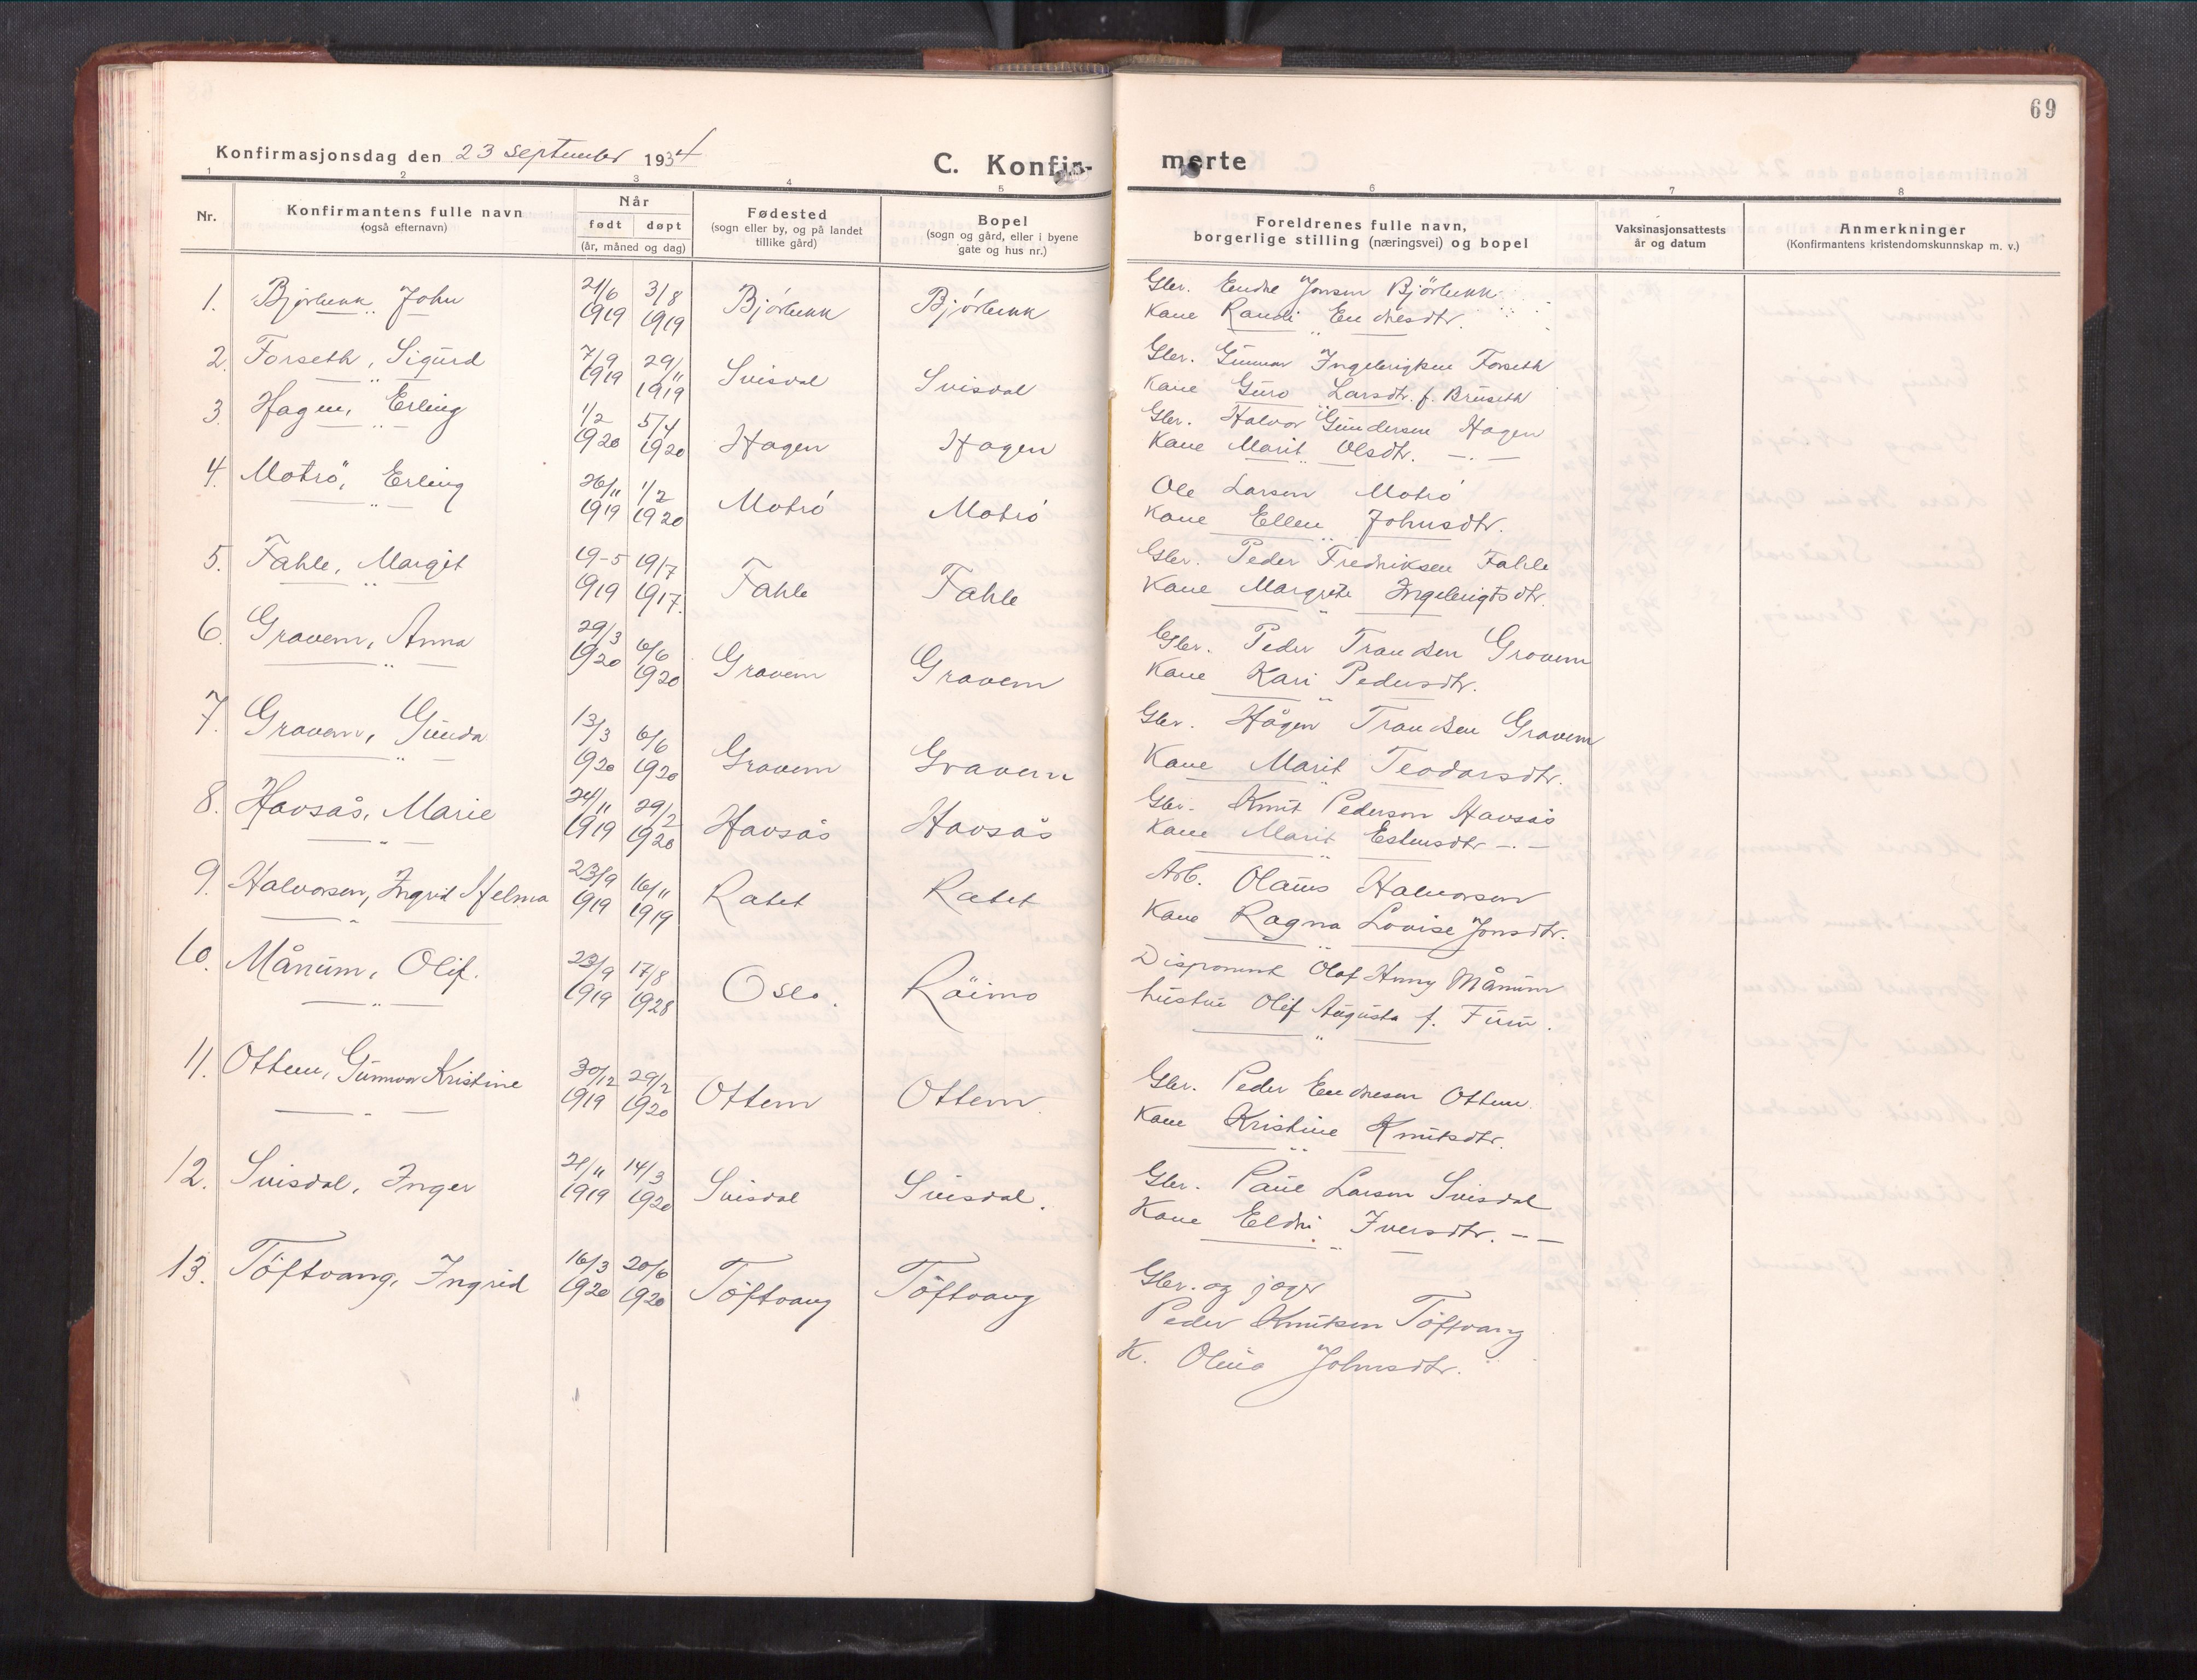 69
Konfirmasjonsdag den 23 september 1934
C. Konfir-
merte
1 2 3 4 5 6 7 8
Nr.
Konfirmantens fulle navn
(også efternavn)
Når
født døpt
(år, måned og dag)
Fødested
(sogn eller by, og på landet
tillike gård)
Bopel
(sogn og gård, eller i byene
gate og hus nr.)
Foreldrenes fulle navn,
borgerlige stilling (næringsvei) og bopel
Vaksinasjonsattests
år og datum
Anmerkninger
(Konfirmantens kristendomskunnskap m. v.)
1. Bjørbekk John 21/6 3/8 Bjørbekk Bjørbekk Gbr. Endre Jonsen Bjørbekk
1919 1919 Kone Randi Endresdtr.
2. Forseth, Sigurd 7/9 29/11 Svisdal Svisdal Gbr. Gunnar Ingebrigtsen Forseth
1919 1919 Kone Guro Larsdtr. f. Bruseth
3. Hagen, Erling 1/2 5/4 Hagen Hagen Gbr. Halvor Gundersen Hagen
1920 1920 Kone Marit Olsdtr. —.—
4. Motrö, Erling 26/11 1/2 Motrö Motrö Ole Larsen Motrö
1919 1920 Kone Ellen Johnsdtr.
5. Fahle, Margit 19-5 19/7 Fahle Fahle Gbr. Peder Fredriksen Fahle
1919 1917. Kone Margrete Ingebrigtsdtr.
6. Gravem, Anna 29/3 6/6 Gravem Gravem Gbr. Peder Trondsen Gravem
1920 1920 Kone Kari Pedersdtr.
7. Gravem, Gunda 13/3 6/6 Gravem Gravem Gbr. Hågen Trondsen Gravem
1920 1920 Kone Marit Teodorsdtr.
8. Havsås, Marie 24/11 29/2 Havsås Havsås Gbr. Knut Pederson Havsås
1919 1920 Kone Marit Estensdtr —.—
9. Halvorsen, Ingrid Helma 23/9 16/11 Ratet Ratet Arb. Olaus Halvorsen
1919 1919 Kone Ragna Lovise Jonsdtr.
10. Månum, Olif. 23/9 17/8 Oslo. Röimo Disponent Olaf Henry Månum
1919 1928 hustru Olif Augusta f. Furu.
11. Ottem, Gunvor Kristine 30/12 29/2 Ottem Ottem. Gbr. Peder Endresen Ottem.
1919 1920 Kone Kristine Knutsdtr.
12. Svisdal, Inger 21/11 14/3 Svisdal Svisdal. Gbr. Paul Larsen Svisdal
1919 1920 Kone Eldri Iversdtr. — —
13. Töftvang, Ingrid 16/3 20/6 Töftvang Töftvang Gbr. og jæger
1920 1920 Peder Knutsen Töftvang
K. Olina Johnsdtr.